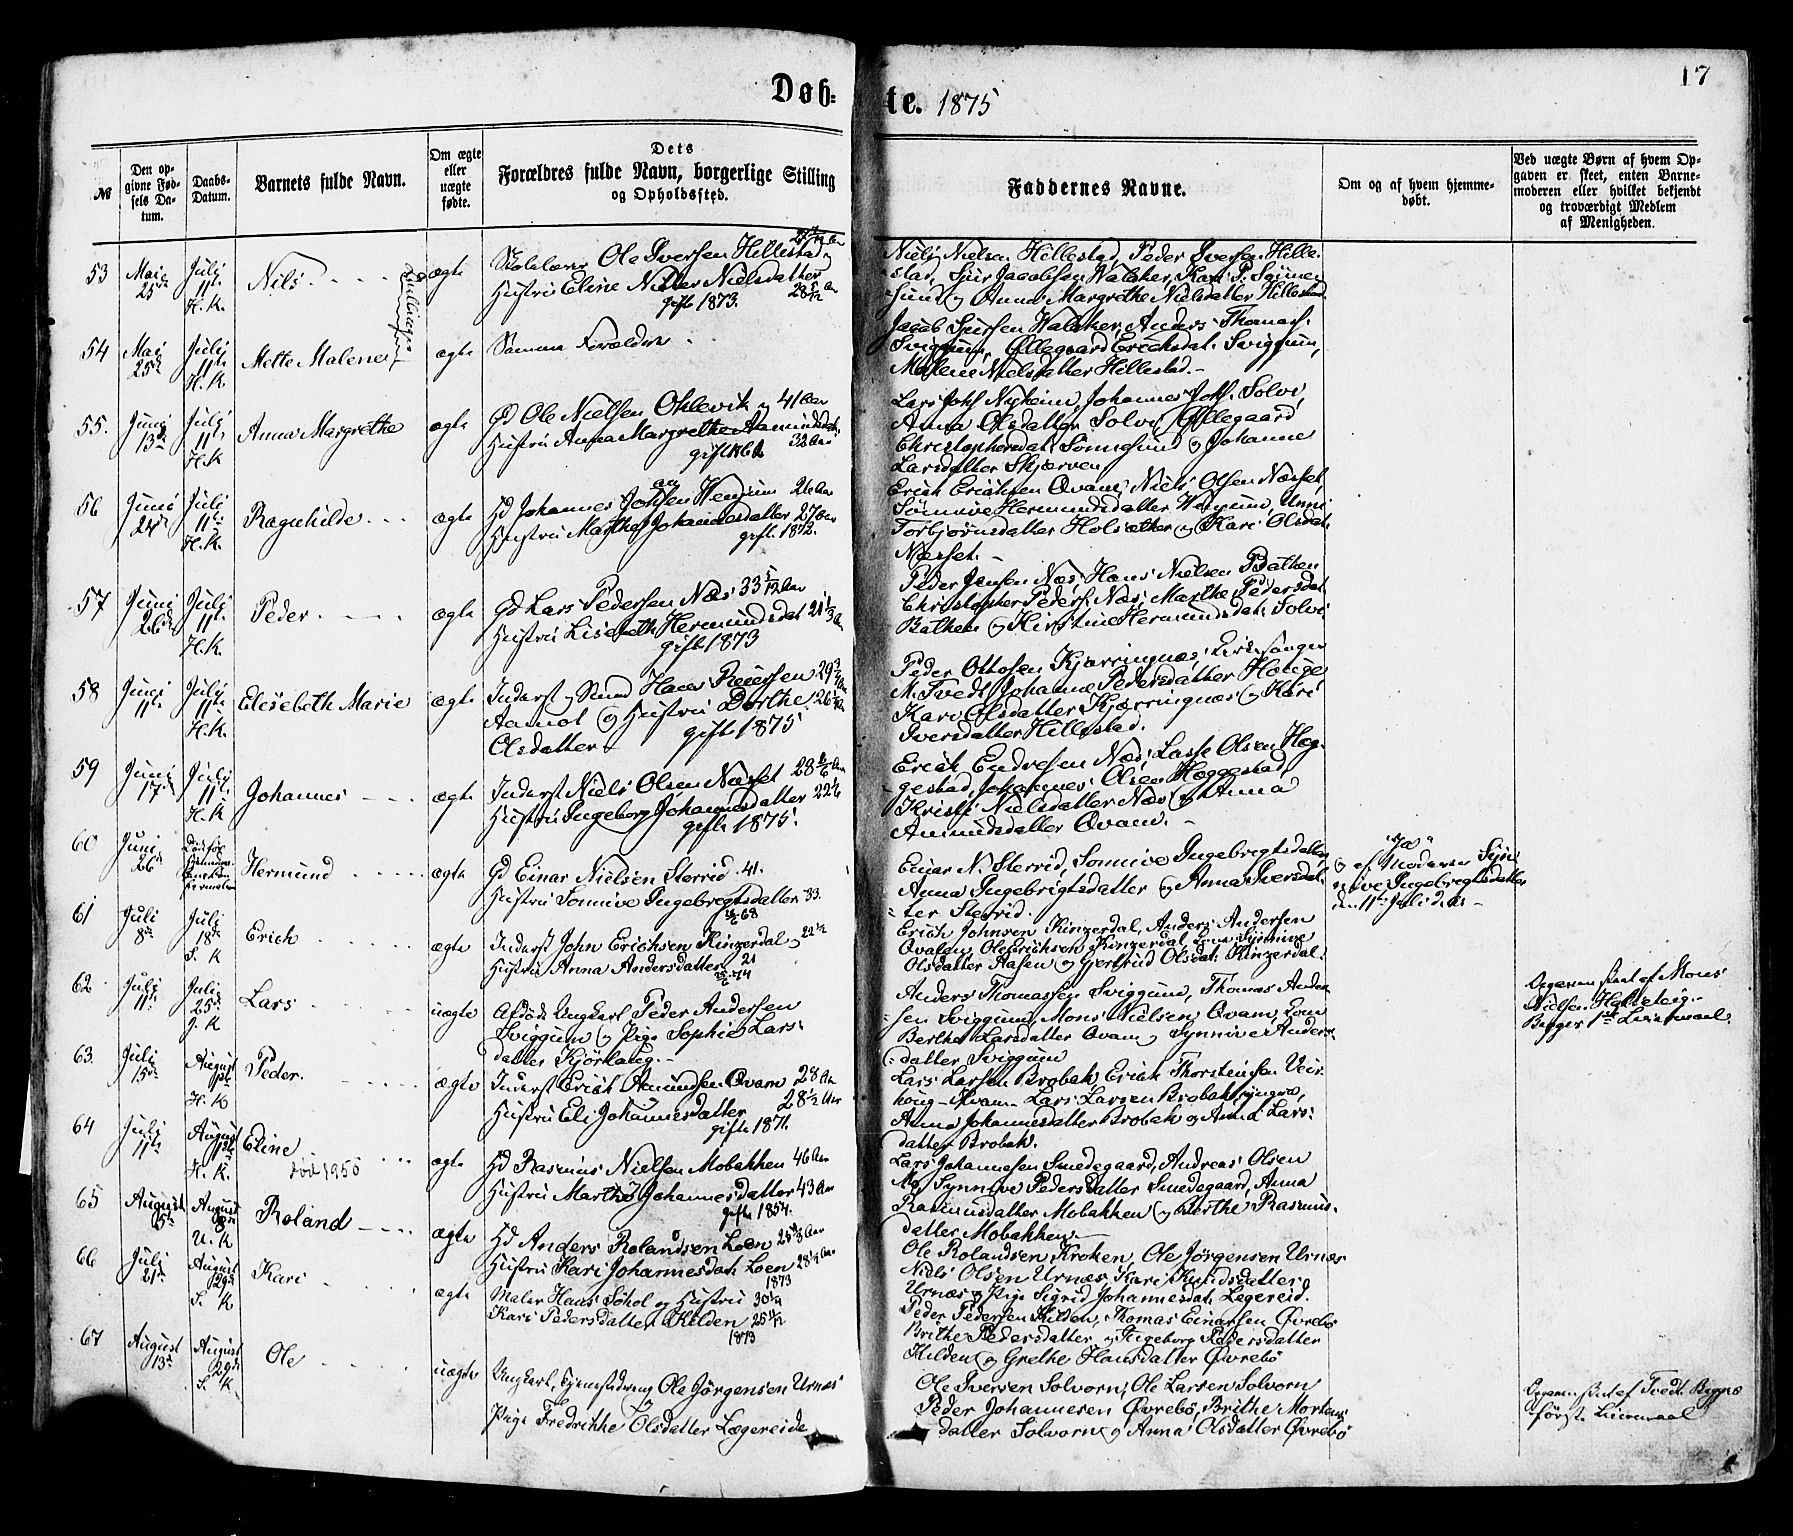 Døb-te. 1875
17
№
Den opgivne Fødsels Datum.
Daabs-Datum.
Barnets fulde Navn.
Om ægte eller uægte fødte.
Dets Forældres fulde Navn, borgerlige Stilling og Opholdssted.
Faddernes Navne.
Om og af hvem hjemmedøbt.
Ved uægte Børn af hvem Opgaven er skeet, enten Barnemoderen eller hvilket bekjendt og troværdigt Medlem af Menigheden.
53 Mai 25 Juli 11te H. K. Nils ægte
Skolelærer Ole Iversen Hillestad
Hustru Eline Nielsdatter
gift 1873.
Niels Nielsen Hillestad, Peder Iversen Hille-
stad, Sjur Jacobsen Walaker, Kari P. Sønne-
sund og Anna Margrethe Nielsdatter Hillestad
Tvillinger
54 Mai 25 Juli 11te H. K. Mette Malene ægte
Samme Forældre
Jacob Sjursen Walaker, Anders Thomass.
Sviggum, Øllegaard Erichsdat. Sviggum,
Malene Nielsdatter Hillestad.
55. Juni 13de Juli 11te H. K. Anna Margrethe ægte
Gd Ole Nielsen Ohlevik og 41 Aar
Hustru Anna Margrethe Aamundsdat. 32 Aar
Lars Johs Nyheim, Johannes Joh. Solvi,
Anna Olsdatter Solvi, Øllegaard
Christophersdat. Sønnesund og Johanne
Larsdatter Skjerven
56 Juni 24de Juli 11te H. K. Ragnhilde ægte
Gd Johannes Johsen Wengum 26 Aar
Hustru Marthe Johannesdatter 27 Aar
gift 1872.
Erich Erichsen Qvam, Niels Olsen Næsset,
Sønnive Hermundsdatter Wengum, Unni
Torbjørnsdatter Holsæther og Kari Olsdat.
Næsset.
57 Juni 26de Juli 11te H. K. Peder ægte
Gd Lars Pedersen Næs 33 5/12 Aar
Hustru Lisebeth Hermundsdat 21 1/3 Aar
gift 1873
Peder Jensen Næs, Hans Nielsen Bathen
Christopher Peders. Næs, Marthe Pedersdat.
Bathen og Kirstine Hermundsdat. Solvi
58 Juni 11te Juli 11te H. K. Elisebeth Marie ægte
Inderst og Smed Hans Reiersen 29 3/4
Aamot og Hustru Dorthe 26
Olsdatter gift 1875
Peder Ottosen Kjærringnæs, Kirkesanger
M. Tvedt, Johanne Pedersdatter Hauge
Kari Olsdatter Kjærringnæs og Kari
Iversdatter Hillestad.
59 Juni 17de Juli 11te H. K. Johannes ægte
Inderst Niels Olsen Næset 28 5/6 Aar
Hustru Ingeborg Johannesdatter 22 1/6
gift 1875.
Erich Endresen Næs, Lasse Olsen Hæg-
gestad, Johannes Olsen Hæggestad,
Kristi Nielsdatter Næs og Anna
Amundsdatter Qvam.
60 Juni 26 Hermund ægte
Gd Einar Nielsen Sterrid 41.
Hustru Sønnive Ingebregtsdatter 33.
Einar N. Sterrid, Sønnive Ingebregtsdatter,
Anna Ingebrigtsdatter og Anna Iversdat-
ter Sterrid.
"Ja"
og af Moderen Søn-
nive Ingebregtsdatter
den 11te Juli d. A.
61 Juli 8de Juli 18de S. K Erich ægte
Inderst John Erichsen Kinzerdal og 22 1/2
Hustru Anna Andersdatter 21
Erich Johnsen Kinzerdal, Anders Andersen
Qvalen, Ole Erichsen Kinzerdal, Synnive
Olsdatter Aasen og Gjertrud Olsdat. Kinzerdal.
62 Juli 11te Juli 25de J. K Lars uægte
Afdøde Ungkarl Peder Andersen
Sviggum og Pige Sophie Lars-
datter Kjørlaug.
Anders Thomassen Sviggum, Thomas Ander-
sen Sviggum, Mons Nielsen Qvam,
Berthe Larsdatter Qvam og Synnive Anders-
datter Sviggum
Opgaven skeet af Mons
Nielsen
Begges 1ste Leiermaal
63. Juli 15de August 1ste H. K Peder ægte
Inderst Erich Amundsen Qvam 28 Aar
Hustru Eli Johannesdatter 28 1/2 Aar
gift 1871.
Lars Larsen Brobak, Erich Thorsteinsen Veir-
haug - Qvam - Lars Larsen Brobak yngre,
Anna Johannesdatter Brobak og Anna Lars-
datter Brobak.
64 Juli 11te August 1ste H. K. Eline ægte
død 1950
Gd Rasmus Nielsen Mobakken 46 Aar
Hustru Marthe Johannesdatter 43 Aar
gift 1854.
Lars Johannesen Smedegaard, Andreas Olsen
Mo, Synnive Pedersdatter Smedegaard, Anna
Rasmusdatter Mobakken og Berthe Rasmus-
datter Mobakken
65 August 5te August 8de U. K Roland ægte
Gd Anders Rolandsen Loen
Hustru Kari Johannesdat. Loen
1873
Ole Rolandsen Kroken, Ole Jørgensen Urnæs
Niels Olsen Urnæs, Kari Knudsdatter
Urnæs og Pige Sigrid Johannesdat. Legereid.
66 Juli 21de August 29de S. K Kari ægte
Maler Hans Søhol og Hustru 30 1/4
Kari Pedersdatter Kilden 25 11/12
1873
Peder Pedersen Kilden, Thomas Einarsen Øvrebø
Brithe Pedersdatter og Ingeborg Pedersdatter
Kilden og Grethe Hansdatter Øvrebø
67 August 13de August 29de S. K Ole uægte
Ungkarl, hjemstedsrug Ole Jørgensen Urnæs
Pige Fredrikke Olsdatter Lægereide
Ole Iversen Solvorn, Ole Larsen Solvorn
Peder Johannesen Øvrebø, Brithe Mortens-
datter Solvorn og Anna Olsdatter Øvrebø
Opgaven skeet af Tvedt Begges
første Leiermaal